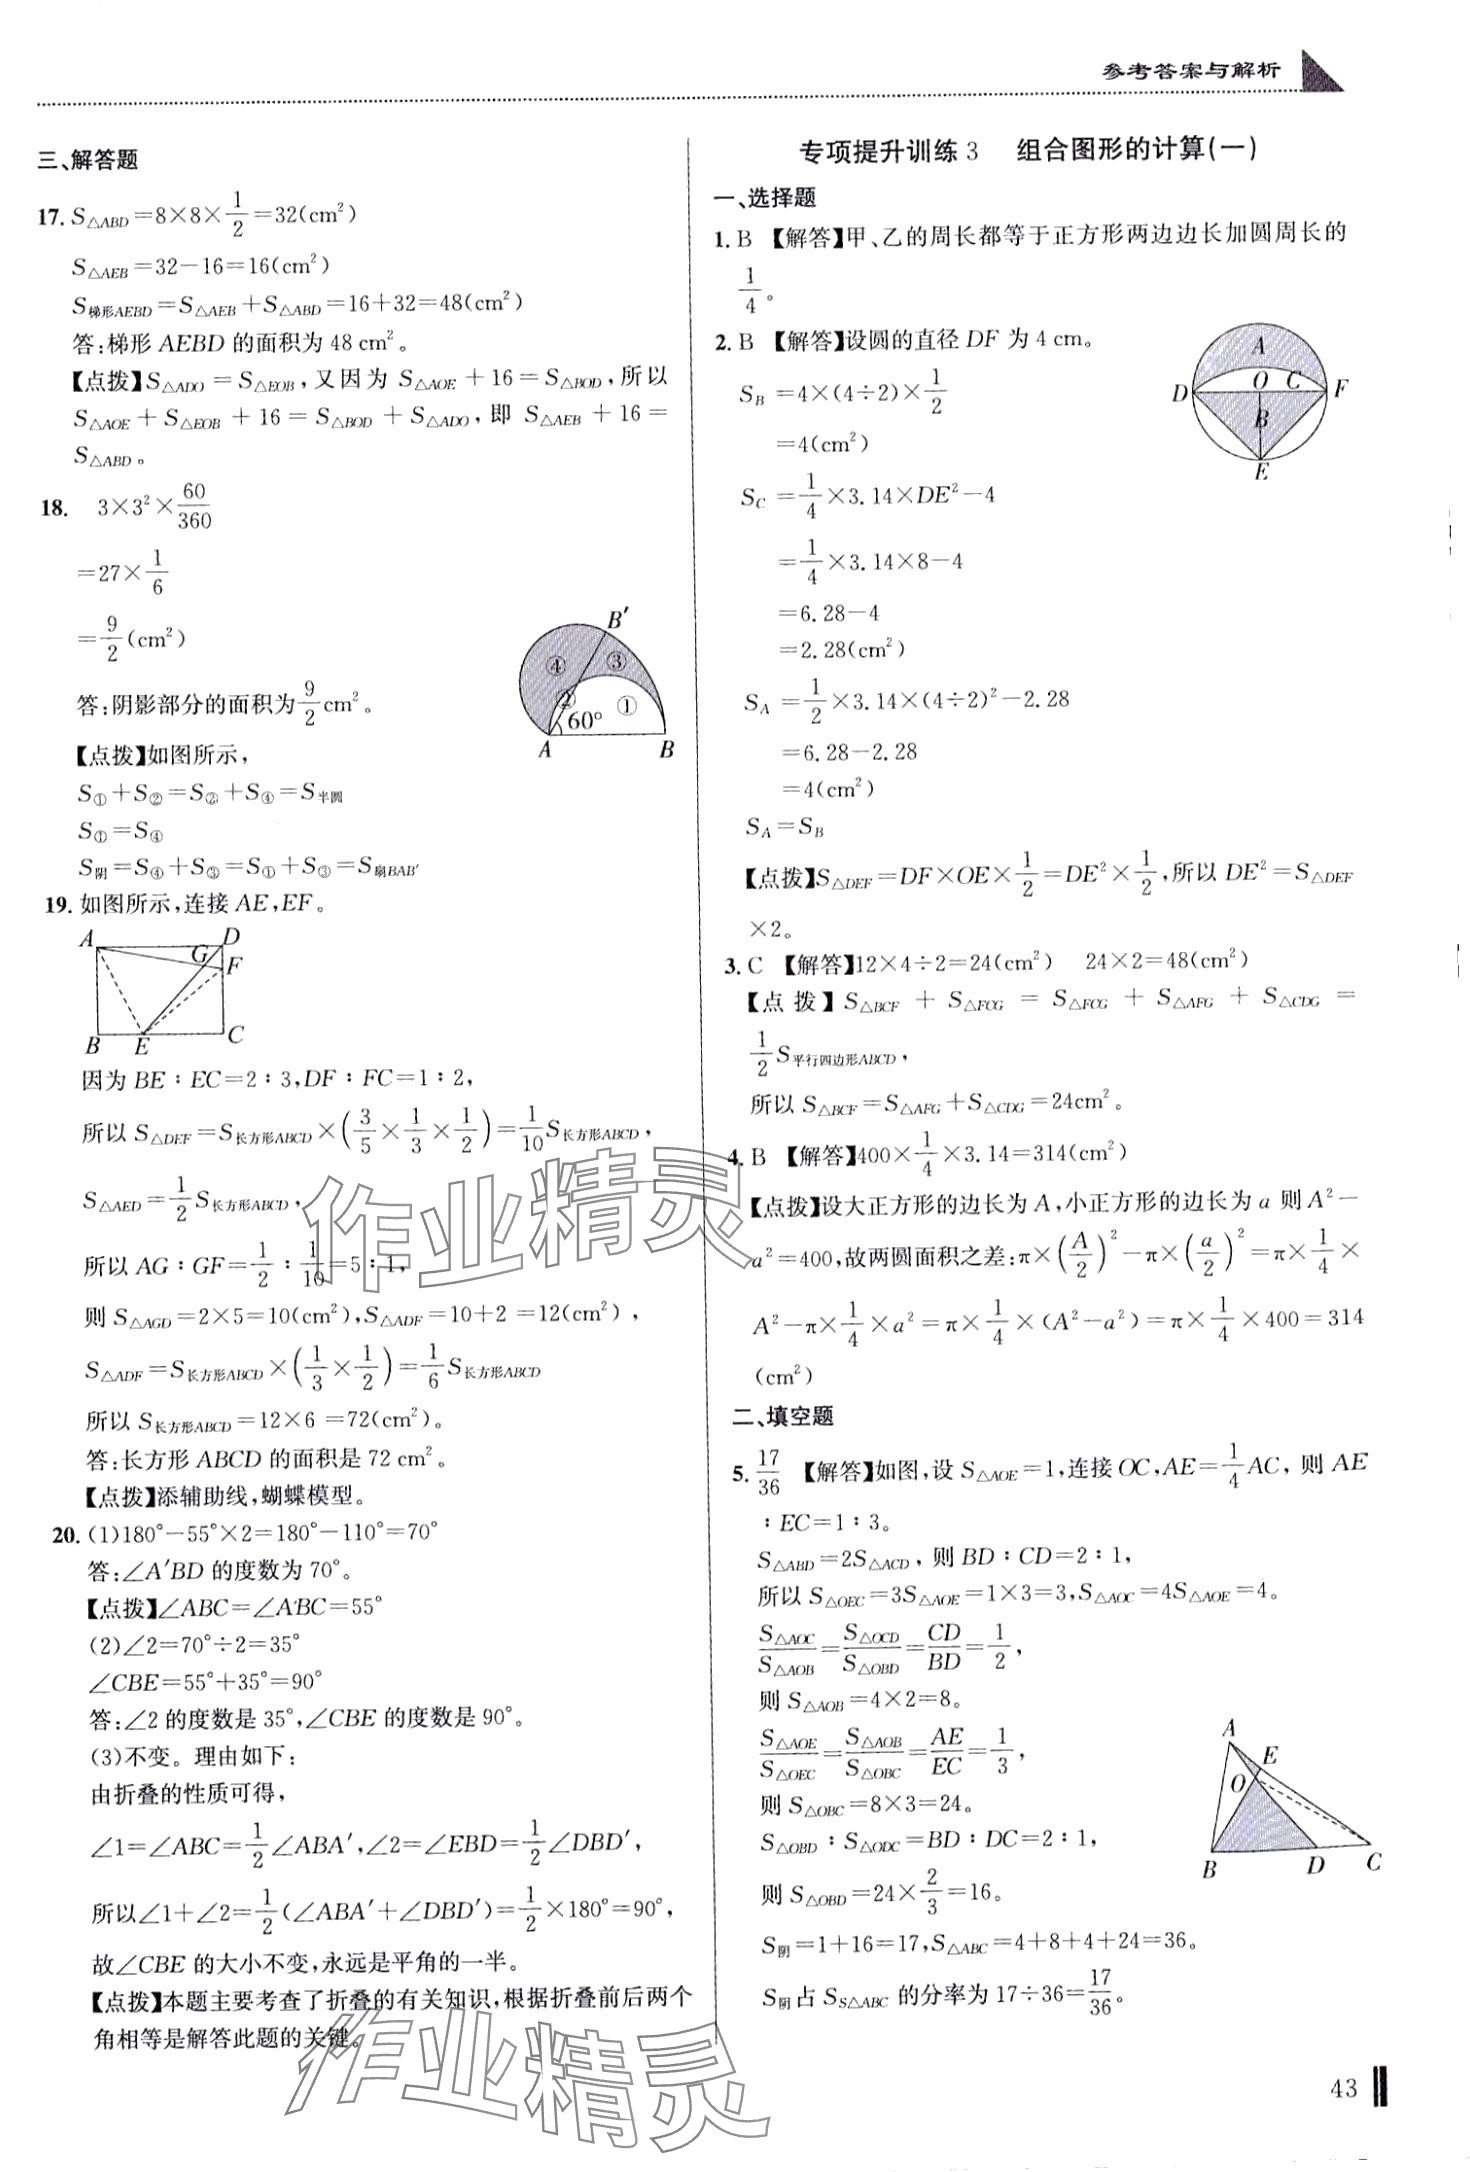 参考答案与解析
三、解答题
17. S△ABD=8×8×1/2=32(cm²)
S△AEB=32-16=16(cm²)
S梯形AEBD=S△AEB+S△ABD=16+32=48(cm²)
答:梯形 AEBD 的面积为 48 cm²。
【点拨】S△ADO=S△EOB,又因为 S△AOE+16=S△BOD,所以
S△AOE+S△EOB+16=S△BOD+S△ADO,即 S△AEB+16=
S△ABD。
18. 3×3²×60/360
=27×1/6
=9/2(cm²)
答:阴影部分的面积为9/2cm²。
【点拨】如图所示,
S①+S②=S②+S④=S半圆
S①=S④
S阴=S④+S③=S①+S③=S扇BAB′
B′
④ ③
② ①
60°
A B
19. 如图所示,连接 AE,EF。
A G D
F
B E C
因为 BE∶EC=2∶3,DF∶FC=1∶2,
所以 S△DEF=S长方形ABCD×(3/5×1/3×1/2)=1/10S长方形ABCD,
S△AED=1/2S长方形ABCD,
所以 AG∶GF=1/2∶1/10=5∶1,
则 S△AGD=2×5=10(cm²),S△ADF=10+2=12(cm²),
S△ADF=S长方形ABCD×(1/3×1/2)=1/6S长方形ABCD
所以 S长方形ABCD=12×6=72(cm²)。
答:长方形 ABCD 的面积是 72 cm²。
【点拨】添辅助线,蝴蝶模型。
20. (1)180°-55°×2=180°-110°=70°
答:∠A′BD 的度数为 70°。
【点拨】∠ABC=∠A′BC=55°
(2)∠2=70°÷2=35°
∠CBE=55°+35°=90°
答:∠2 的度数是 35°,∠CBE 的度数是 90°。
(3)不变。理由如下:
由折叠的性质可得,
∠1=∠ABC=1/2∠ABA′,∠2=∠EBD=1/2∠DBD′,
所以∠1+∠2=1/2(∠ABA′+∠DBD′)=1/2×180°=90°,
故∠CBE 的大小不变,永远是平角的一半。
【点拨】本题主要考查了折叠的有关知识,根据折叠前后两个
角相等是解答此题的关键。
专项提升训练 3 组合图形的计算(一)
一、选择题
1. B 【解答】甲、乙的周长都等于正方形两边边长加圆周长的
1/4。
2. B 【解答】设圆的直径 DF 为 4 cm。
S_B=4×(4÷2)×1/2
=4(cm²)
S_C=1/4×3.14×DE²-4
=1/4×3.14×8-4
=6.28-4
=2.28(cm²)
S_A=1/2×3.14×(4÷2)²-2.28
=6.28-2.28
=4(cm²)
S_A=S_B
A
D O C F
B
E
【点拨】S△DEF=DF×OE×1/2=DE²×1/2,所以 DE²=S△DEF
×2。
3. C 【解答】12×4÷2=24(cm²) 24×2=48(cm²)
【点拨】S△BCF+S△FCG=S△FCG+S△AFG+S△CDG=
1/2S平行四边形ABCD,
所以 S△BCF=S△AFG+S△CDG=24cm²。
4. B 【解答】400×1/4×3.14=314(cm²)
【点拨】设大正方形的边长为 A,小正方形的边长为 a 则 A²-
a²=400,故两圆面积之差:π×(A/2)²-π×(a/2)²=π×1/4×
A²-π×1/4×a²=π×1/4×(A²-a²)=π×1/4×400=314
(cm²)
二、填空题
5. 17/36 【解答】如图,设 S△AOE=1,连接 OC,AE=1/4AC, 则 AE
∶EC=1∶3。
S△ABD=2S△ACD,则 BD∶CD=2∶1,
所以 S△OEC=3S△AOE=1×3=3,S△AOC=4S△AOE=4。
S△AOC/S△AOB=S△OCD/S△OBD=CD/BD=1/2,
则 S△AOB=4×2=8。
S△AOE/S△OEC=S△AOB/S△OBC=AE/EC=1/3,
则 S△OBC=8×3=24。
S△OBD∶S△ODC=BD∶DC=2∶1,
则 S△OBD=24×2/3=16。
S阴=1+16=17,S△ABC=4+8+4+24=36。
S阴占 S_S△ABC 的分率为 17÷36=17/36。
A
E
O
B D C
作业精灵
作业精灵
43